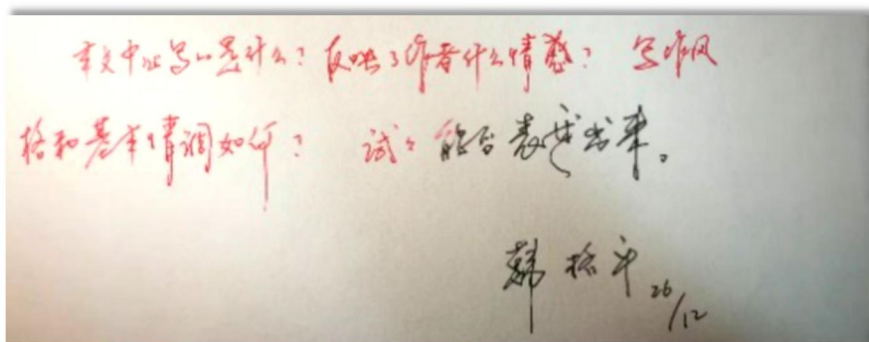 本文中心写的是什么？反映了作者什么情感？写作风
格和基本情调如何？试试能否表述出来。
韩格平
26/12